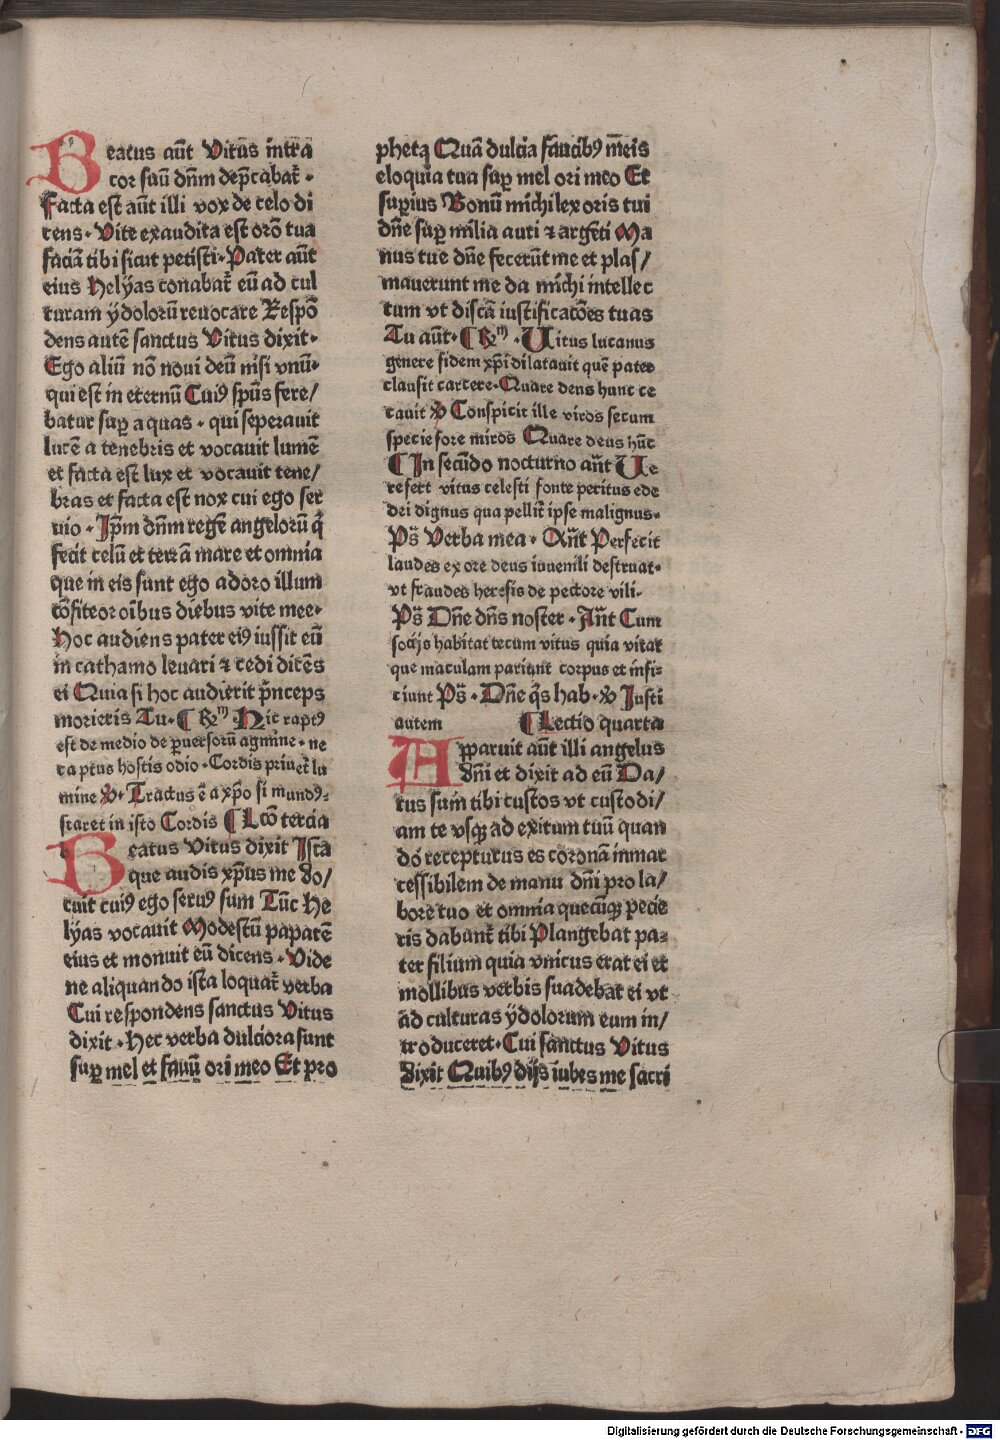 Beatus aūt Vitus intra
cor suū dn̄m dep̄cabat᷑ ·
Facta est aūt illi vox de celo di
cens · Vite exaudita est or̄o tua
faciā tibi sicut petisti · Pater aūt
eius Helyas conabat᷑ eū ad cul
turam ydolorū reuocare Respō
dens autē sanctus Vitus dixit ·
Ego aliū nō noui deū nisi vnū ·
qui est in eternū Cuiꝰ sp̄us fere/
batur suꝑ aquas · qui seperauit
lucē a tenebris et vocauit lumē
et facta est lux et vocauit tene/
bras et facta est nox cui ego ser
uio · Ip̄m dn̄m regē angelorū q̄
fecit celū et terrā mare et omnia
que in eis sunt ego adoro illum
cōfiteor oībus diebus vite mee ·
Hoc audiens pater eiꝰ iussit eū
in cathamo leuari ⁊ cedi dicēs
ei Quia si hoc audierit p̄nceps
morieris Tu · ¶ ℟m · Hic raptꝰ
est de medio de ꝑuersorū agmine · ne
captus hostis odio · Cordis priuet᷑ lu
mine ℣ · Tractus ē a xp̄o si mundꝰ ·
staret in isto Cordis ¶ Lcō tercia
Beatus Vitus dixit Ista
que audis xp̄us me do/
cuit cuiꝰ ego seruꝰ sum Tūc He
lyas vocauit Modestū papatē
eius et monuit eū dicens · Vide
ne aliquando ista loquat᷑ verba
Cui respondens sanctus Vitus
dixit · Hec verba dulciora sunt
suꝑ mel et fauū ori meo Et pro
phetꝫ Quā dulcia faucibꝰ meis
eloquia tua suꝑ mel ori meo Et
suꝑius Bonū michi lex oris tui
dn̄e suꝑ milia auri ⁊ argēti Ma
nus tue dn̄e fecerūt me et plas/
mauerunt me da michi intellec
tum vt discā iustificatōes tuas
Tu aūt · ¶ ℟m · Uitus lucanus
genere fidem xp̄i dilatauit quē pater
clausit carcere · Quare deus hunc ce
cauit ℣ Conspicit ille viros secum
specie fore miros Quare deus hūc
¶ In secūdo nocturno an̄t Ue
refert vitus celesti fonte peritus ede
dei dignus qua pellit᷑ ipse malignus ·
Ps̄ Verba mea · An̄t Perfecit
laudes ex ore deus iuuenili destruat ·
vt fraudes heresis de pectore vili ·
Ps̄ Dn̄e dn̄s noster · An̄t Cum
socijs habitat tecum vitus quia vitat
que maculam pariunt corpus et infi ·
ciunt Ps̄ · Dn̄e q̄s hab · ℣ Justi
autem ¶ Lectio quarta
Apparuit aūt illi angelus
dn̄i et dixit ad eū Da/
tus sum tibi custos vt custodi/
am te vsqꝫ ad exitum tuū quan
do recepturus es coronā inmar
cessibilem de manu dn̄i pro la/
bore tuo et omnia quecūqꝫ pecie
ris dabunt᷑ tibi Plangebat pa-
ter filium quia vnicus erat ei et
mollibus verbis suadebat ei vt
ad culturas ydolorum eum in/
troduceret · Cui sanctus Vitus
dixit Quibꝰ dijs iubes me sacri
Digitalisierung gefördert durch die Deutsche Forschungsgemeinschaft - DFG